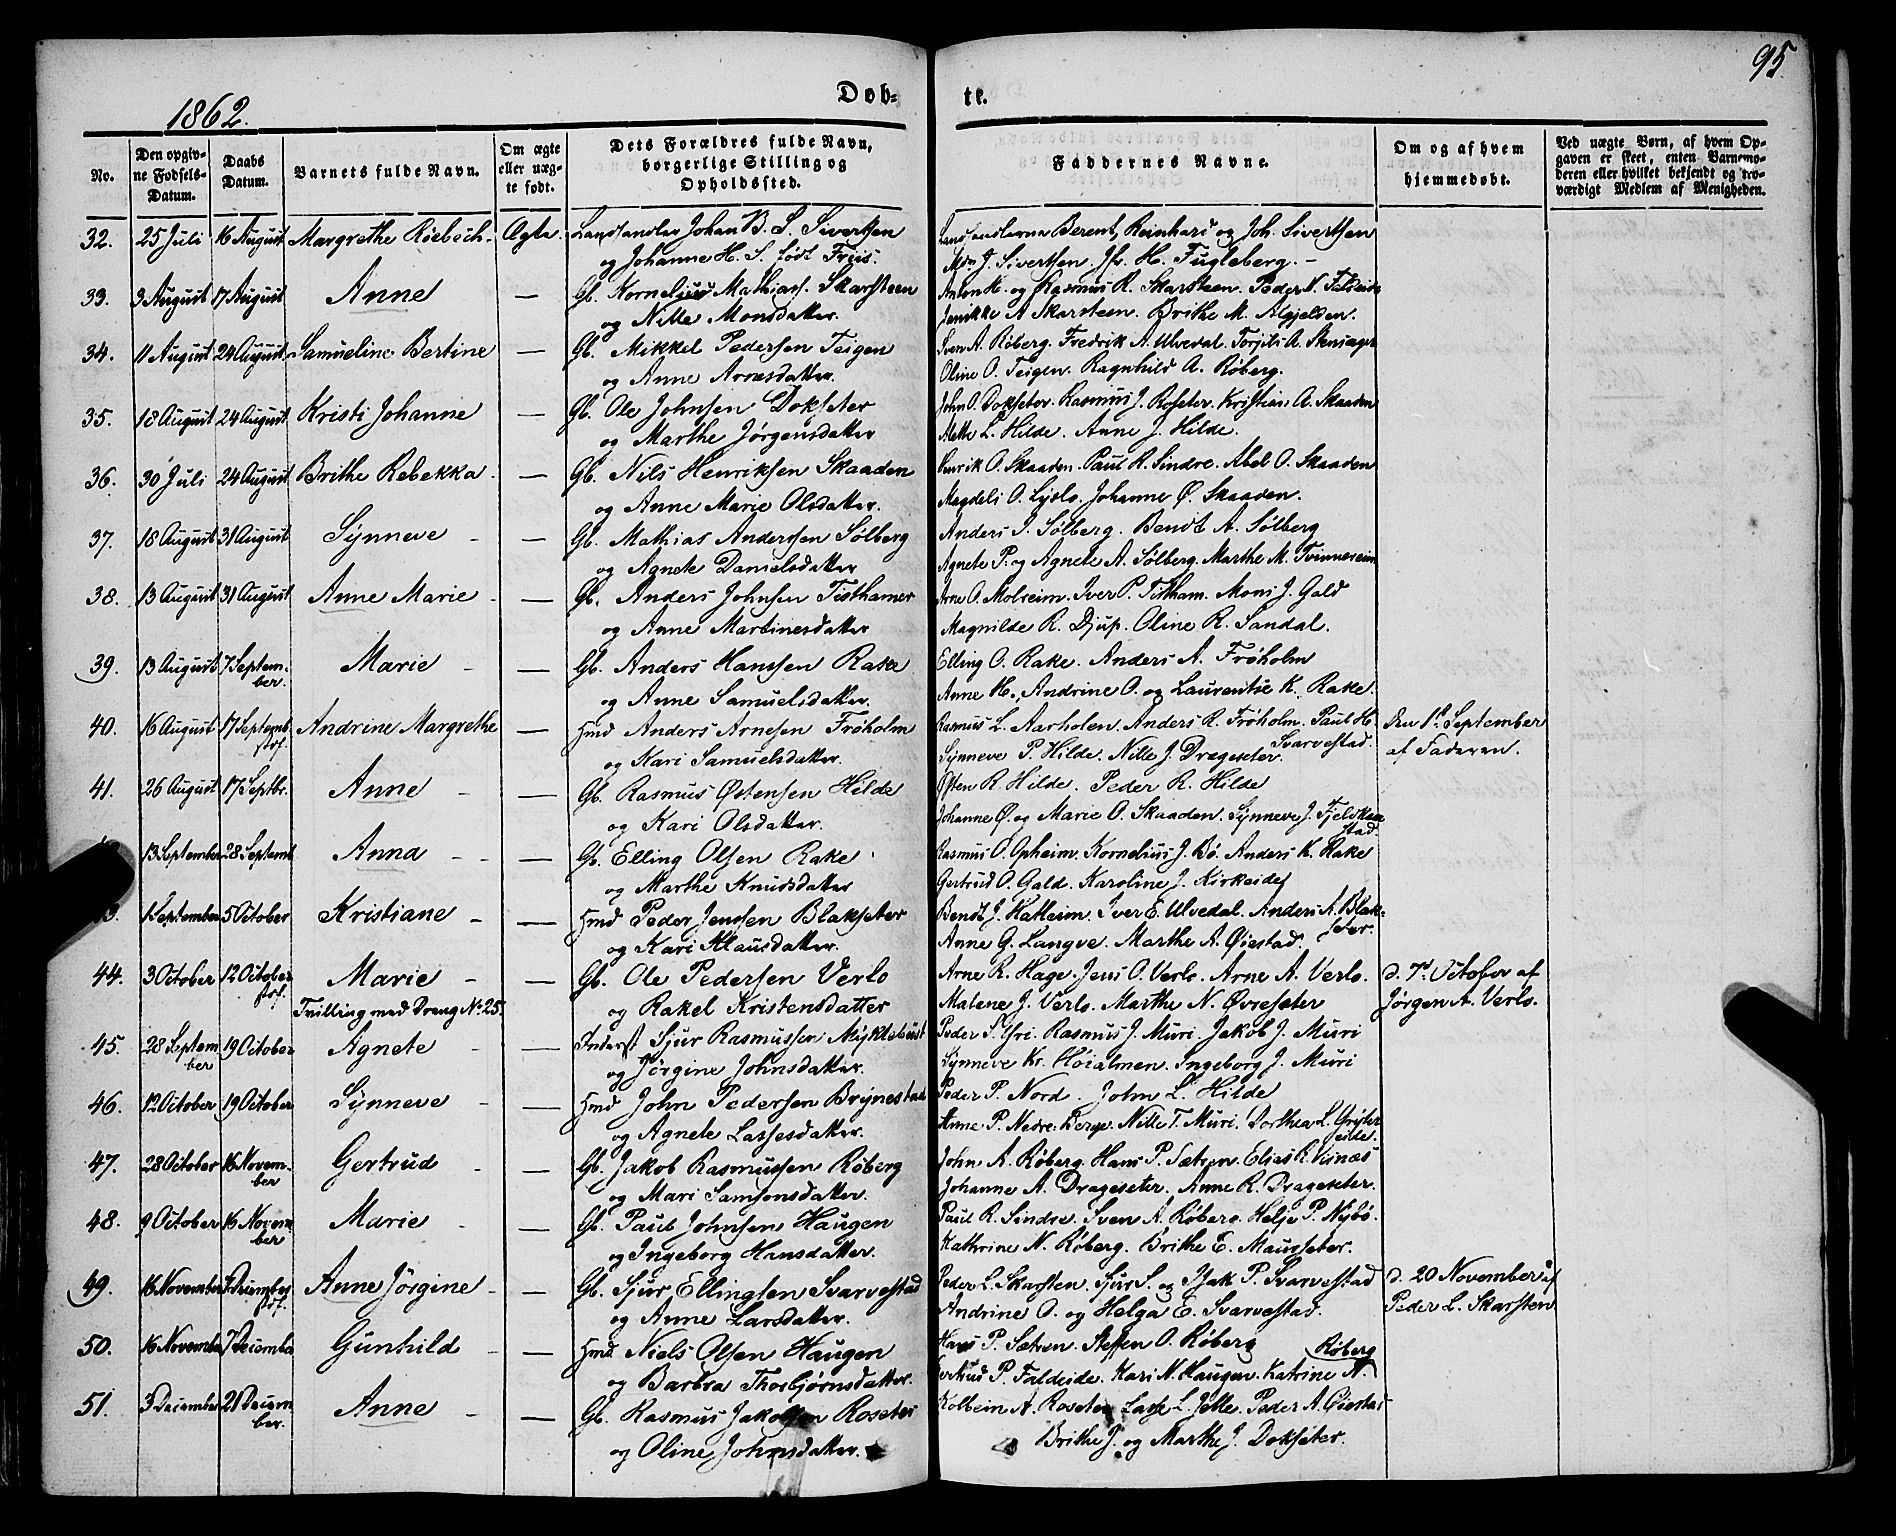 95.
1862.
Døb-
te.
No.
Den opgiv-
ne Fødsels-
Datum.
Daabs
Datum.
Barnets fulde Navn.
Om ægte
eller uæg-
te født.
Dets Forældres fulde Navn,
borgerlige Stilling og
Opholdssted.
Faddernes Navne.
Om og af hvem
hjemmedøbt.
Ved uægte Børn, af hvem Op-
gaven er skeet, enten Barnemo-
deren eller hvilket bekjendt og tro-
værdigt Medlem af Menigheden.
32. 25 Juli 16 August Margrethe Röebech. Ægte. Landhandler Johan B. S. Sivertsen Landhandlerne Berent, Reinhard og Joh. Sivertsen
og Johanne H. S. født Friis. J. Sivertsen. Jfr. H. Fugleberg. –
33. 3 August 17 August Anne — Gb. Kornelius Mathias. Skarsteen Anton K. og Rasmus R. Skarsteen. Peder N. Faleide
og Nille Monsdatter. Jenikke A Skarsteen. Brithe M. Algjelden.
34. 11 August 24 August. Samueline Bertine — Gb. Mikkel Pedersen Teigen Sven A. Röberg. Fredrik A. Ulvedal. Torjils A.
og Anne Arnesdatter. Oline O. Teigen. Ragnhild A. Röberg.
35. 18 August 24 August Kristi Johanne — Gb. Ole Johnsen Dokseter John O. Dokseter. Rasmus J. Roseter. Kristian A. Skaaden
og Marthe Jörgensdatter Mette L. Hilde. Anne J. Hilde.
36. 30 Juli 24 August Brithe Rebekka. — Gb. Nils Henriksen Skaaden Henrik O. Skaaden. Paul R. Sindre. Abel O. Skaaden
og Anne Marie Olsdatter. Magdeli O. Lyslo. Johanne Ø. Skaaden.
37. 18 August 31 August Synneve – — Gb. Mathias Andersen Sølberg Anders J. Sølberg. Bendt A. Sølberg
og Agnete Danielsdatter Agnete P. og Agnete A. Sølberg. Marthe M. Tvinnereim
38. 13 August 31 August Anne Marie – — Gb. Anders Johnsen Tisthamer Arne O. Molreim. Iver P. Tistham. Mons J. Gald
og Anne Martinesdatter Magnilde R. Djup. Oline R. Sandal.
39. 13 August 7 Septem-
ber. Marie – — Gb. Anders Hanssen Rake Elling O. Rake. Anders A. Frøholm
og Anne Samuelsdatter. Anne H., Andrine O. og Laurentse K. Rake.
40. 16 August 17 Septemb. Andrine Margrethe — Hmd Anders Arnesen Frøholm Rasmus L. Aarholen. Anders R. Frøholm. Paul H. den 1ste September
og Kari Samuelsdatter. Synneve P. Hilde. Nille J. Drageseter. Svarvestad. af Faderen.
41. 26 August 17 Septbr. Anne – — Gb. Rasmus Østensen Hilde Østen R Hilde. Peder R. Hilde
og Kari Olsdatter. Johanne Ø. og Marie O. Skaaden. Synneve J.
stad.
13 September 28 Septemb Anna – — Gb. Elling Olsen Rake Rasmus O. Opheim. Kornelius J. Bö. Anders K. Rake
og Marthe Knudsdatter Gertrud O. Gald. Karoline J. Kirkeide
1 September 5 October Kristiane – — Hmd Peder Jenssen Blakseter Bendt J. Hatleim. Iver E. Ulvedal. Anders A. Blak-
og Kari Klausdatter. Anne G. Langve. Marthe A. Øiestad. seter.
44. 3 October 12 October Marie – — Gb. Ole Pedersen Verlo Arne R. Hage. Jens O. Verlo. Arne A. Verlo. d. 7d. October af
Tvilling med Dreng No. 25. og Rakel Kristensdatter Malene J. Verlo. Marthe N. Øvreseter Jörgen A. Verlo.
45. 28 Septem
ber 19 October Agnete – — Inderst Sjur Rasmussen Myklebust Peder S. Rasmus J. Muri. Jakob J. Muri
og Jörgine Johnsdatter. Synneve Kr. Høialmen. Ingeborg J. Muri
46. 12 October 19 October Synneve – — Hmd John Pedersen Brynestad Peder P. Nord. John L. Hilde
og Agnete Lassesdatter. Anne P. Nedre berge. Nille T. Muri. Dorthea L.
47. 28 October 16 Novem-
ber Gertrud – — Gb. Jakob Rasmussen Røberg John A. Røberg. Hans P. Sætren. Elias R. Visnæs
og Mari Samsonsdatter. Johanne A. Drageseter. Anne R. Drageseter.
48. 9 October 16 Novem
ber Marie – — Gb. Paul Johnsen Haugen Paul R. Sindre. Sven A. Røberg. Helje P. Nybö.
og Ingeborg Hansdatter. Kathrine N. Røberg. Brithe E. Mausseter.
49. 16 November 7 December Anne Jörgine – — Gb. Sjur Ellingsen Svarvestad Peder L. Skarsten. Sjur S. og Isak P. Svarvestad d. 20 November af
og Anne Larsdatter. Andrine O. og Helga E. Svarvestad. Peder L. Skarsten
50. 16 Novembe 7 Decembe Gunhild – — Hmd Niels Olsen Haugen Hans P. Sætren. Steffen O. Röberg
og Barbra Thorbjørnsdatter. Gertrud P. Faldeide. Kari N. Haugen. Katrine N. Röberg
51. 3 December 21 Decem
ber. Anne – — Gb. Rasmus Jakobsen Roseter Kolbein A. Roseter Lasse L. Jelle. Peder A. Øiestad
og Oline Johnsdatter. Brithe J. og Marthe J. Dokseter.